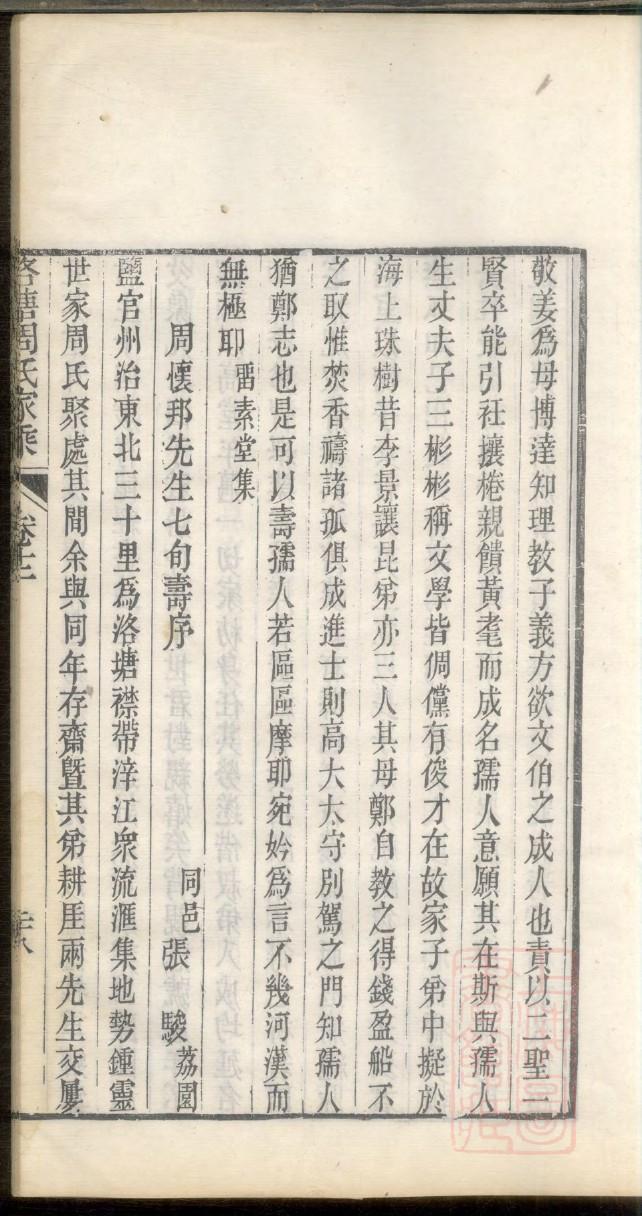 敬姜爲母博達知理教子義方欲文伯之成人也責以二聖一
賢卒能引衽攘棬親饋黃耄而成名孺人意願其在斯與孺人
生丈夫子三彬彬稱文學皆倜儻有俊才在故家子弟中擬於
海上珠樹昔李景讓昆弟亦三人其母鄭自教之得錢盈船不
之取惟焚香禱諸孤俱成進士則高大太守別駕之門知孺人
猶鄭志也是可以壽孺人若區區摩耶宛妗爲言不幾河漢而
無極耶 畱素堂集
周懷邦先生七旬壽序 同邑張駿荔園
鹽官州治東北三十里爲洛塘襟帶淬江衆流滙集地勢鍾靈
世家周氏聚處其間余與同年存齋暨其弟耕厓兩先生交屢
洛塘周氏家乘 卷十二